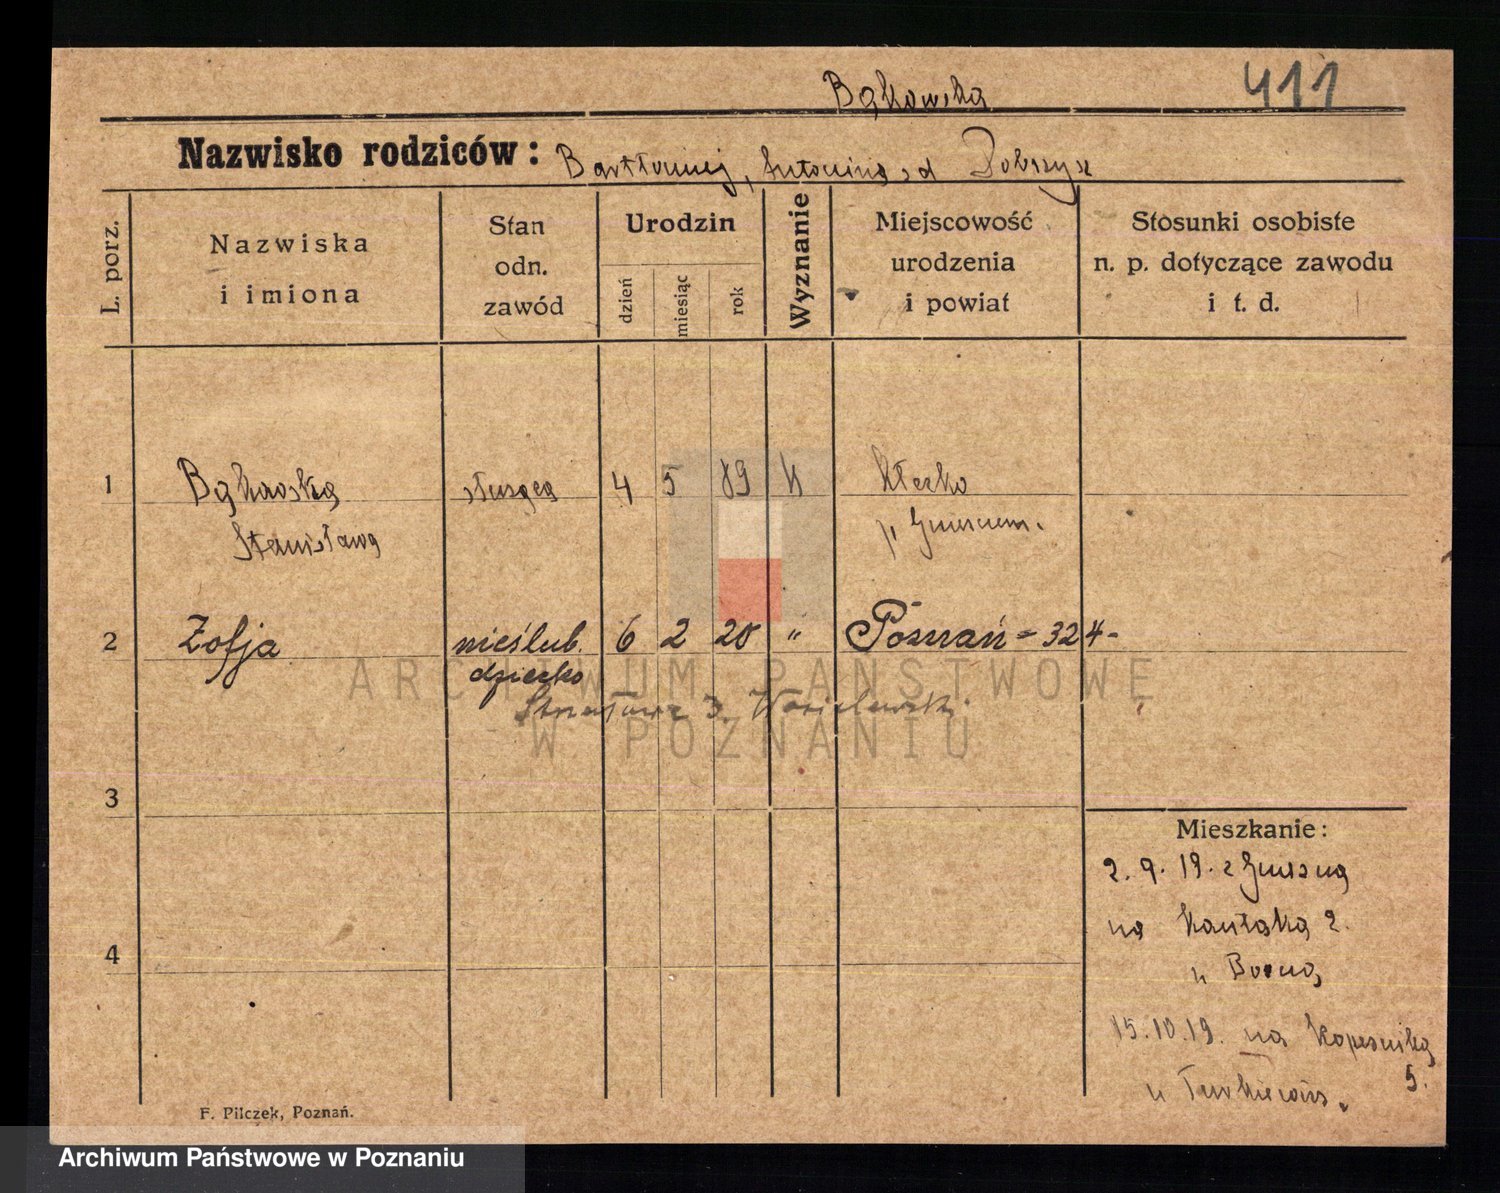 Bąkowska 411
Nazwisko rodziców: Bartłomiej, Antonina od
L. porz.
Nazwiska
i imiona
Stan
odn.
zawód
Urodzin
dzień
miesiąc
rok
Wyznanie
Miejscowość
urodzenia
i powiat
Stosunki osobiste
n. p. dotyczące zawodu
i t. d.
1 Bąkowska służąca 4 5 89 K Kłecko
Stanisława p. Gnieznem.
2 Zofja nieślub. 6 2 20 " Poznań - 324-
dziecko
3
Mieszkanie:
2. 9. 19. z Gniezna
na Kantaka 2.
4
u
15.10.19. na Kopernika
5.
u
F. Pilczek, Poznań.
ARCHIWUM PAŃSTWOWE
W POZNANIU
Archiwum Państwowe w Poznaniu